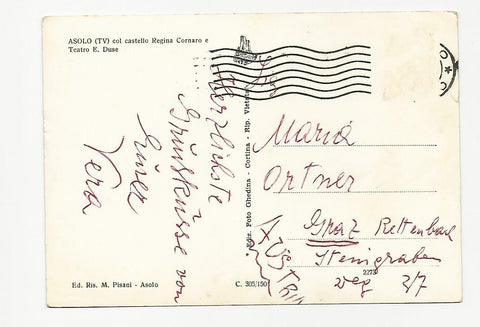 ASOLO (TV) col castello Regina Cornaro e
Teatro E. Duse
Herzlichste
Grüße
Küsse von
Eurer
Vera
Ediz. Foto Ghedina - Cortina - Rip. Vietata
Maria
Ortner
Graz Rettenbach
Steingraben
weg 2/7
2273
AUSTRIA
Ed. Ris. M. Pisani - Asolo
C. 305/150